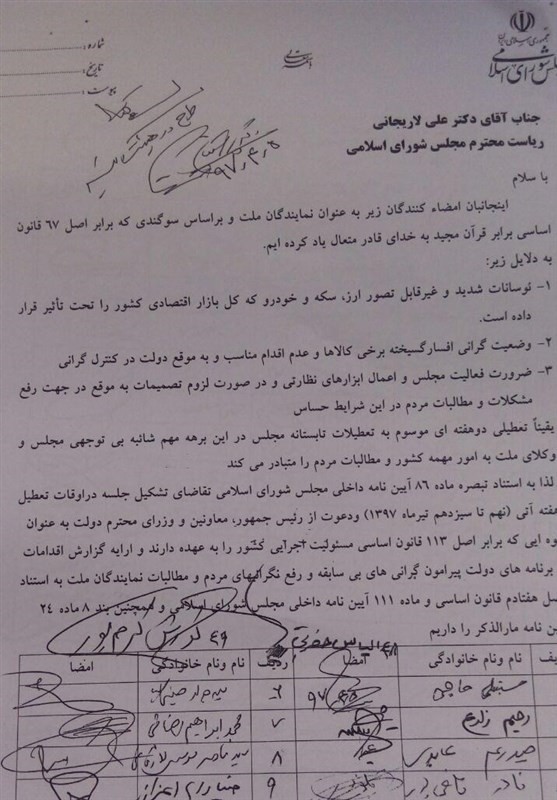 جمهوری اسلامی ایران
مجلس شورای اسلامی
شماره:
تاریخ:
پیوست:
جناب آقای دکتر علی لاریجانی
ریاست محترم مجلس شورای اسلامی
با سلام
اینجانبان امضاء کنندگان زیر به عنوان نمایندگان ملت و براساس سوگندی که برابر اصل ۶۷ قانون
اساسی برابر قرآن مجید به خدای قادر متعال یاد کرده ایم.
به دلایل زیر:
۱- نوسانات شدید و غیرقابل تصور ارز، سکه و خودرو که کل بازار اقتصادی کشور را تحت تأثیر قرار
داده است.
۲- وضعیت گرانی افسارگسیخته برخی کالاها و عدم اقدام مناسب و به موقع دولت در کنترل گرانی
۳- ضرورت فعالیت مجلس و اعمال ابزارهای نظارتی و در صورت لزوم تصمیمات به موقع در جهت رفع
مشکلات و مطالبات مردم در این شرایط حساس
یقیناً تعطیلی دوهفته ای موسوم به تعطیلات تابستانه مجلس در این برهه مهم شائبه بی توجهی مجلس و
وکلای ملت به امور مهمه کشور و مطالبات مردم را متبادر می کند
لذا به استناد تبصره ماده ۸۶ آیین نامه داخلی مجلس شورای اسلامی تقاضای تشکیل جلسه دراوقات تعطیل
هفته آتی (نهم تا سیزدهم تیرماه ۱۳۹۷) ودعوت از رئیس جمهور، معاونین و وزرای محترم دولت به عنوان
وه ایی که برابر اصل ۱۱۳ قانون اساسی مسئولیت اجرایی کشور را به عهده دارند و ارایه گزارش اقدامات
برنامه های دولت پیرامون گرانی های بی سابقه و رفع نگرانیهای مردم و مطالبات نمایندگان ملت به استناد
صل هفتادم قانون اساسی و ماده ۱۱۱ آیین نامه داخلی مجلس شورای اسلامی و همچنین بند ۸ ماده ۲۴
ین نامه مارالذکر را داریم
یف نام ونام خانوادگی امضا ردیف نام ونام خانوادگی امضا
۶
۷ محمد ابراهیم رضائی
۸
۹